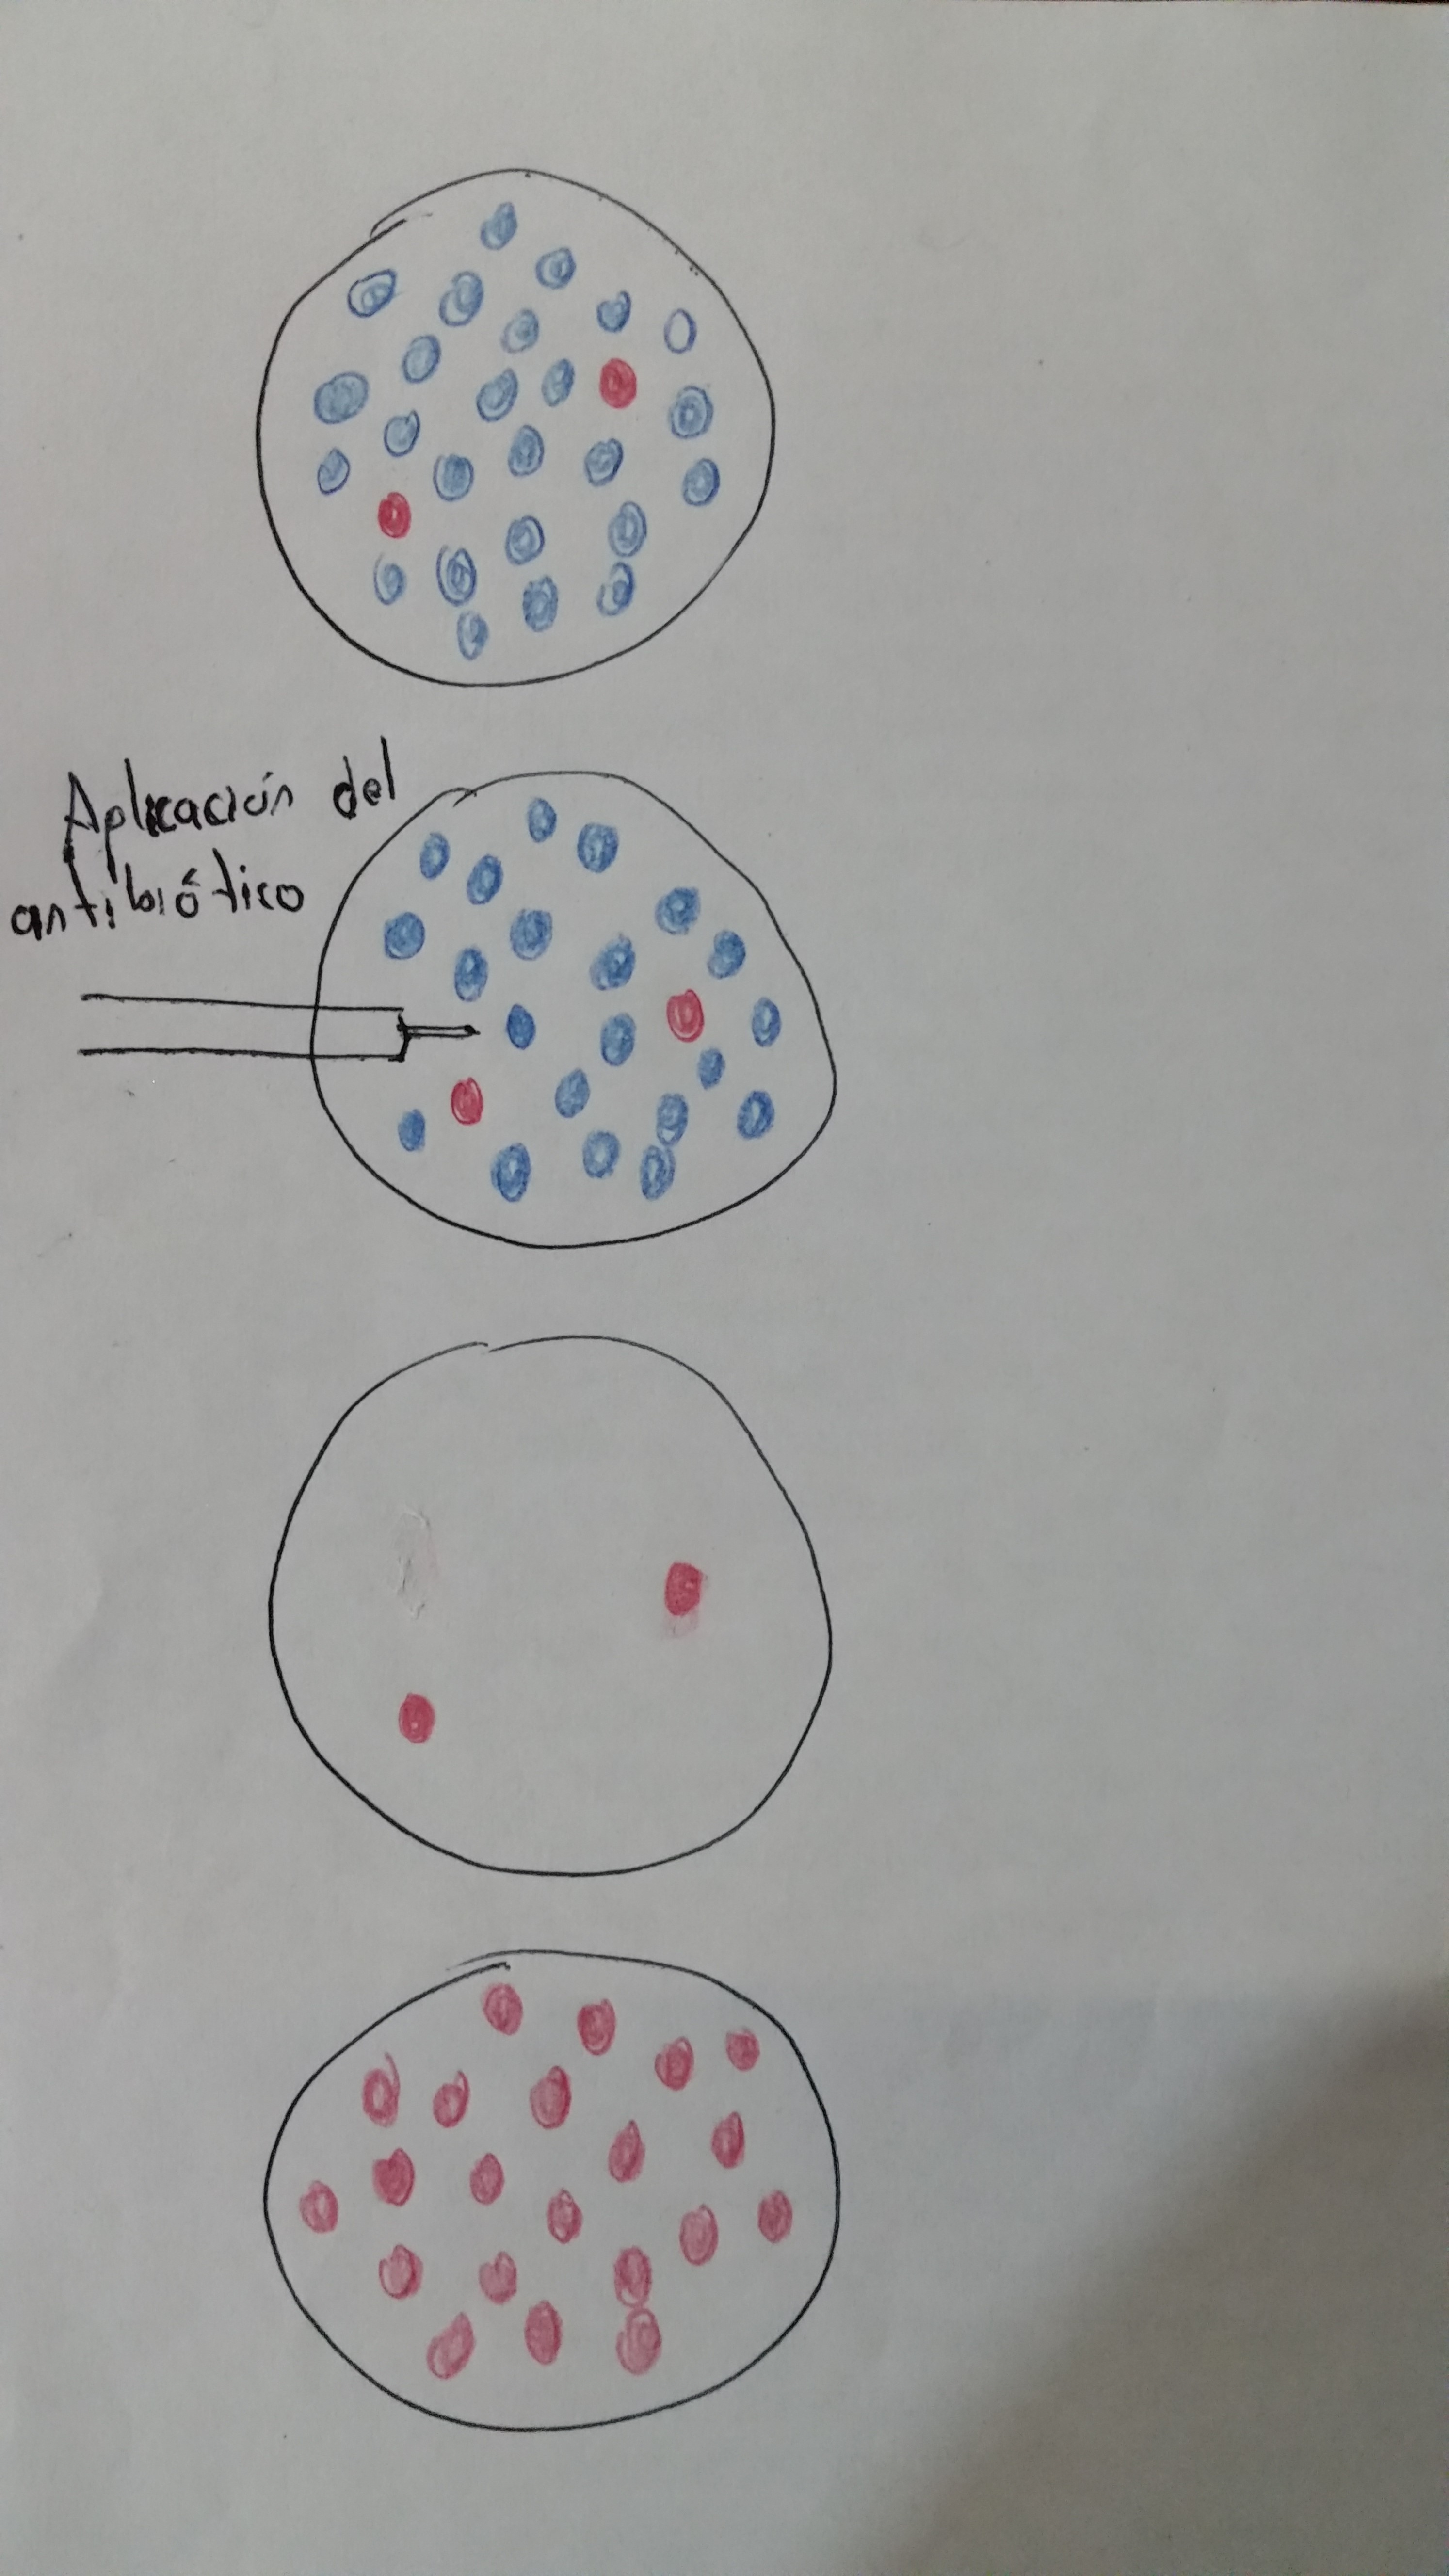 Aplicación del
antibiótico